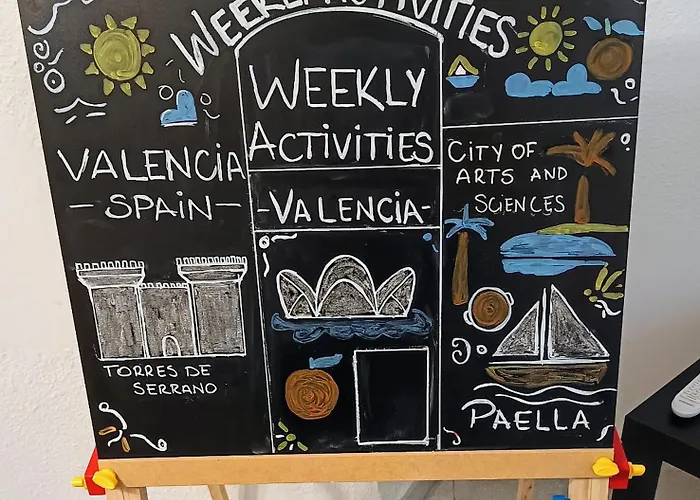 WEEKLY ACTIVITIES
VALENCIA
- SPAIN -
TORRES DE
SERRANO
WEEKLY
ACTIVITIES
-VALENCIA-
CITY OF
ARTS AND
SCIENCES
PAELLA